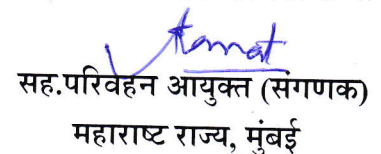 सह.परिवहन आयुक्त (संगणक)
महाराष्ट राज्य, मुंबई